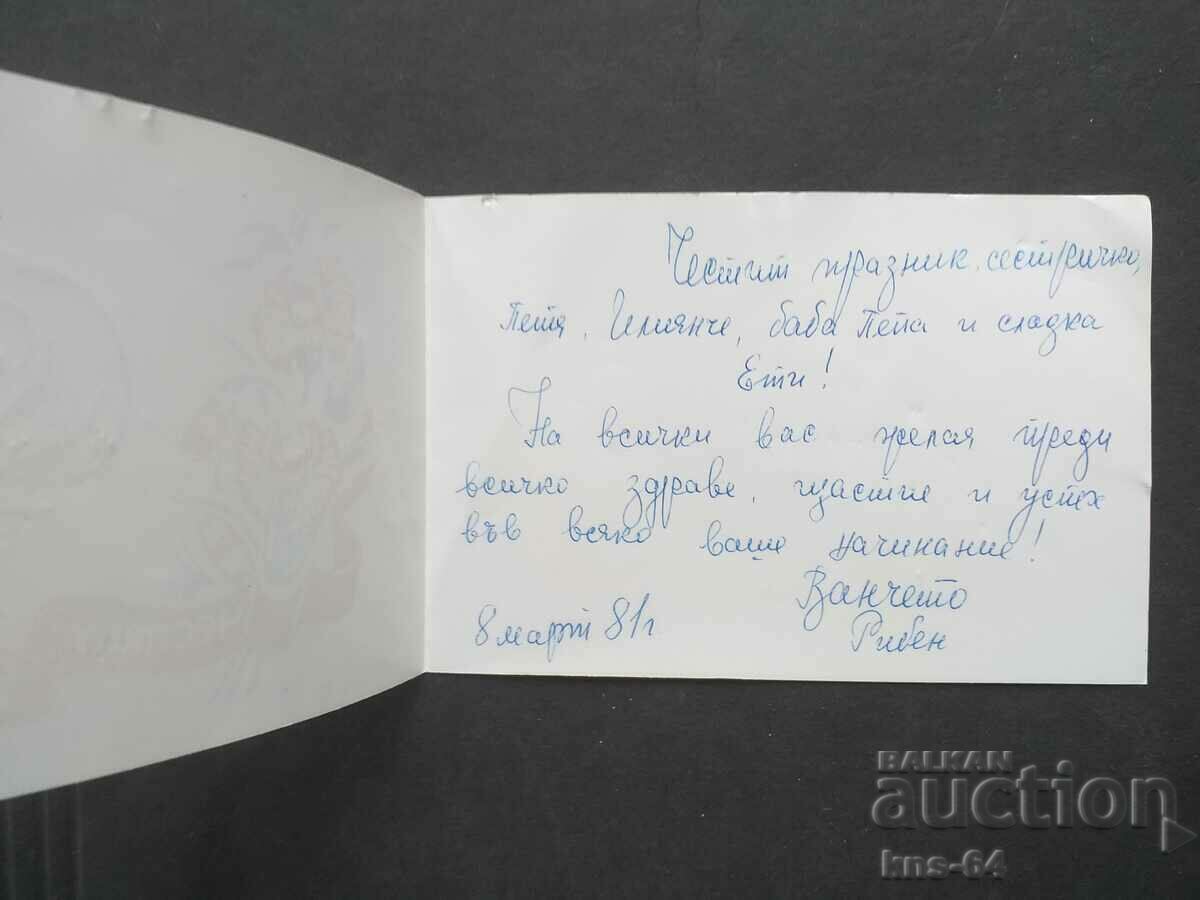 Честит празник, сестричко,
Петя, Илиянче, баба Пепа и сладка
Ети!
На всички вас желая преди
всичко здраве, щастие и успех
във всяко ваше начинание!
Ванчето
8 март 81 г
Рибен
BALKAN
auction
kns-64